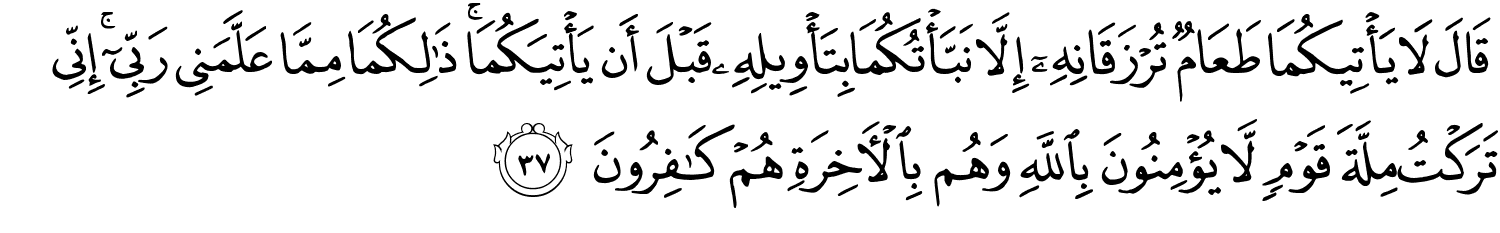 قَالَ لَا يَأْتِيكُمَا طَعَامٌ تُرْزَقَانِهِۦٓ إِلَّا نَبَّأْتُكُمَا بِتَأْوِيلِهِۦ قَبْلَ أَن يَأْتِيَكُمَا ۚ ذَٰلِكُمَا مِمَّا عَلَّمَنِى رَبِّىٓ ۚ إِنِّى
تَرَكْتُ مِلَّةَ قَوْمٍ لَّا يُؤْمِنُونَ بِٱللَّهِ وَهُم بِٱلْأَخِرَةِ هُمْ كَـٰفِرُونَ ٣٧